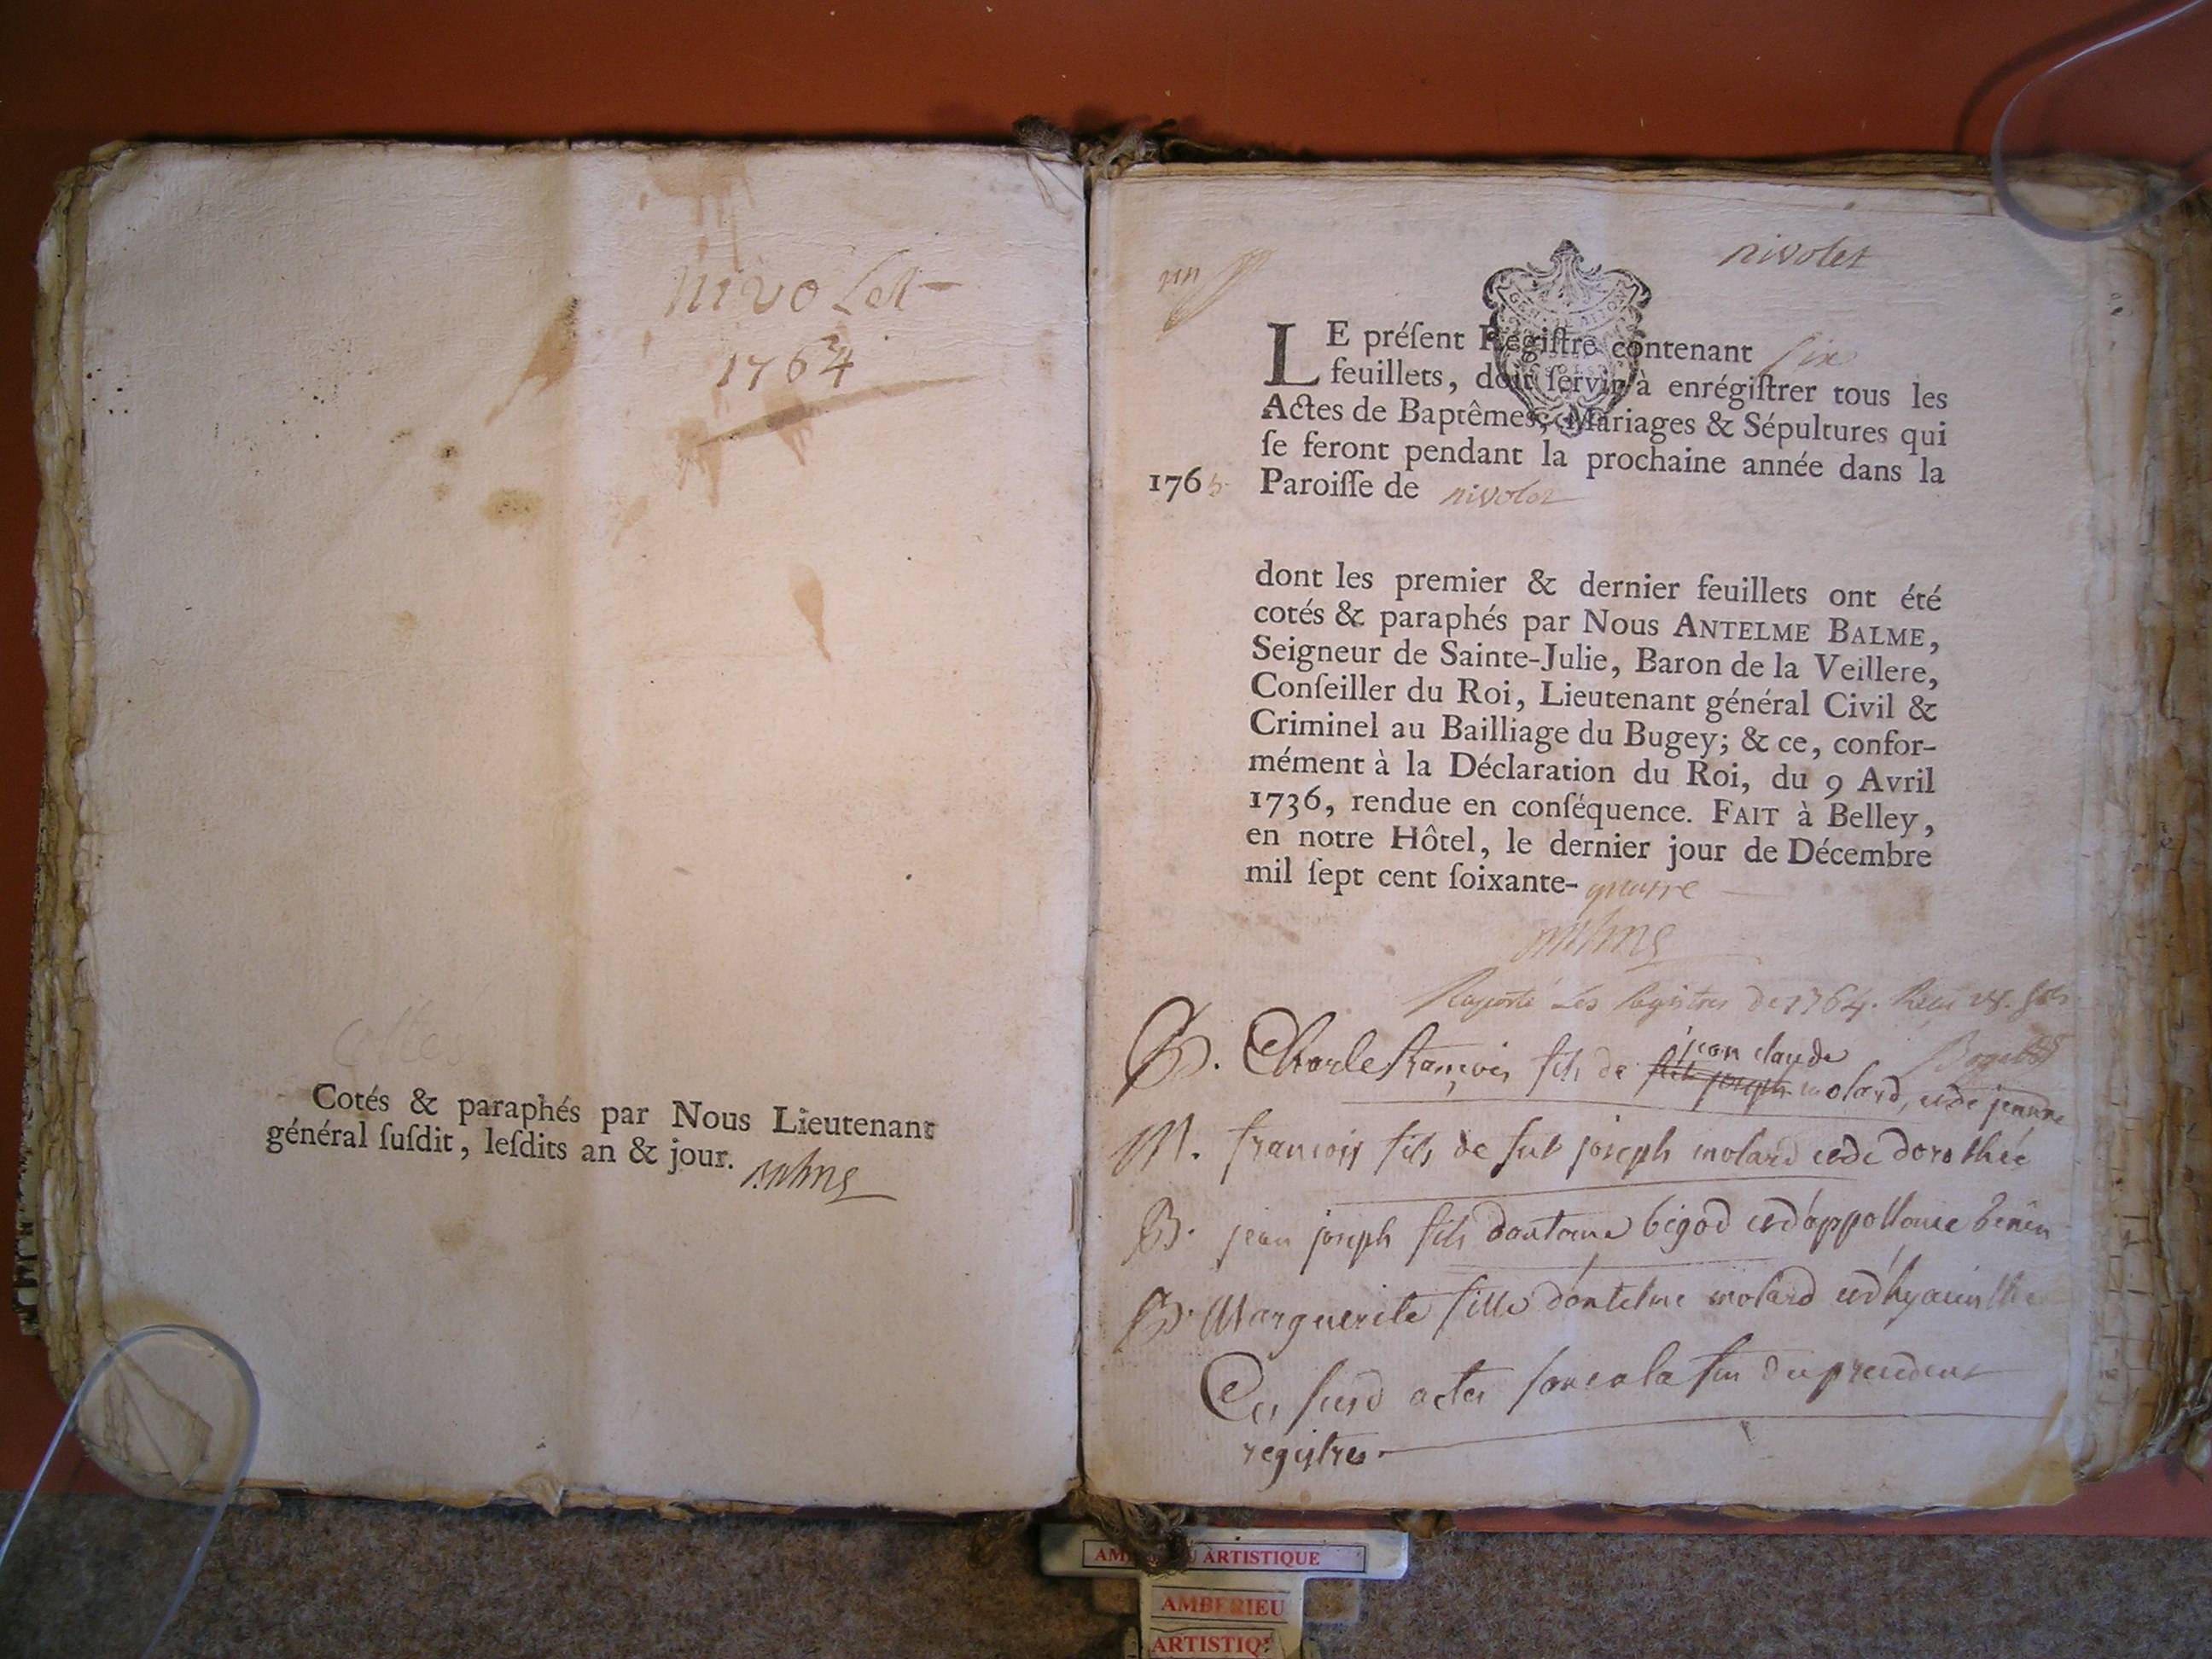 nivolet
1764
Cotés & paraphés par Nous Lieutenant
général ſuſdit, leſdits an & jour.
un
nivolet
LE préſent Regiſtre contenant six
feuillets, doit ſervir à enrégiſtrer tous les
Actes de Baptêmes, Mariages & Sépultures qui
ſe feront pendant la prochaine année dans la
1765 Paroiſſe de nivolet
dont les premier & dernier feuillets ont été
cotés & paraphés par Nous ANTELME BALME,
Seigneur de Sainte-Julie, Baron de la Veillere,
Conſeiller du Roi, Lieutenant général Civil &
Criminel au Bailliage du Bugey; & ce, confor-
mément à la Déclaration du Roi, du 9 Avril
1736, rendue en conſéquence. FAIT à Belley,
en notre Hôtel, le dernier jour de Décembre
mil ſept cent ſoixante- quatre
Raporté Les Registres de 1764.
jean claude
B. Charle françois fils de molard, et de jeanne
M. francois fils de fut joseph molard et de dorothée
B. jean joseph fils dantoine bigod et d'appollonie
B. Marguerite fille d'antelme molard et d'hyacinthe
Ces susd actes sont a la fin du precedent
registre
AMBERIEU ARTISTIQUE
AMBERIEU
ARTISTIQUE